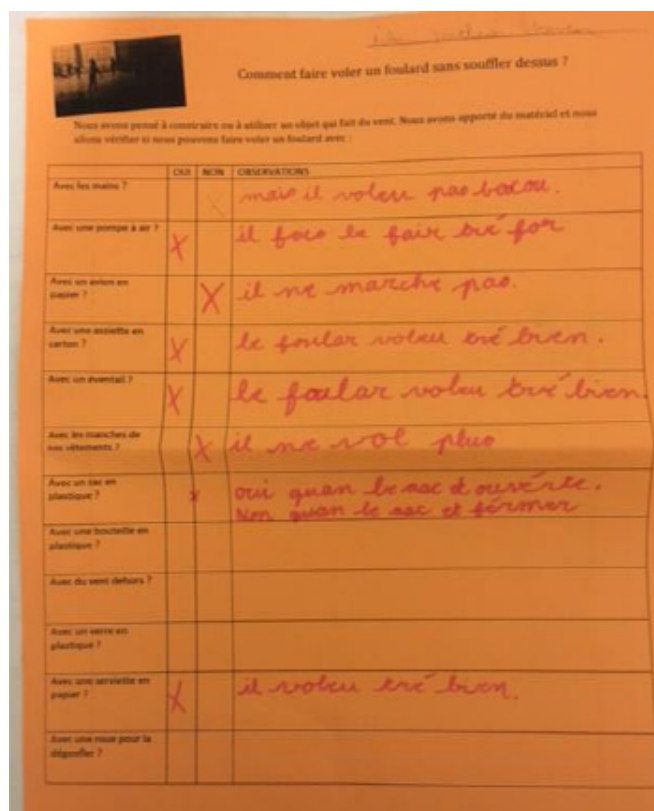 Comment faire voler un foulard sans souffler dessus ?
Nous avons pensé à construire ou à utiliser un objet qui fait du vent. Nous avons apporté du matériel et nous
allons vérifier si nous pouvons faire voler un foulard avec :
OUI NON OBSERVATIONS
Avec les mains ? mais il voleu pas bocou.
Avec une pompe à air ? X il faco le fair tré for
Avec un avion en
papier ? X il ne marche pas.
Avec une assiette en
carton ? X le foular voleu tré bien.
Avec un éventail ? X le foular voleu tré bien.
Avec les manches de
nos vêtements ? X il ne vol plus
Avec un sac en
plastique ? x oui quan le sac é ouvérte.
Non quan le sac et férmer
Avec une bouteille en
plastique ?
Avec du vent dehors ?
Avec un verre en
plastique ?
Avec une serviette en
papier ? X il voleu tré bien.
Avec une roue pour la
dégonfler ?